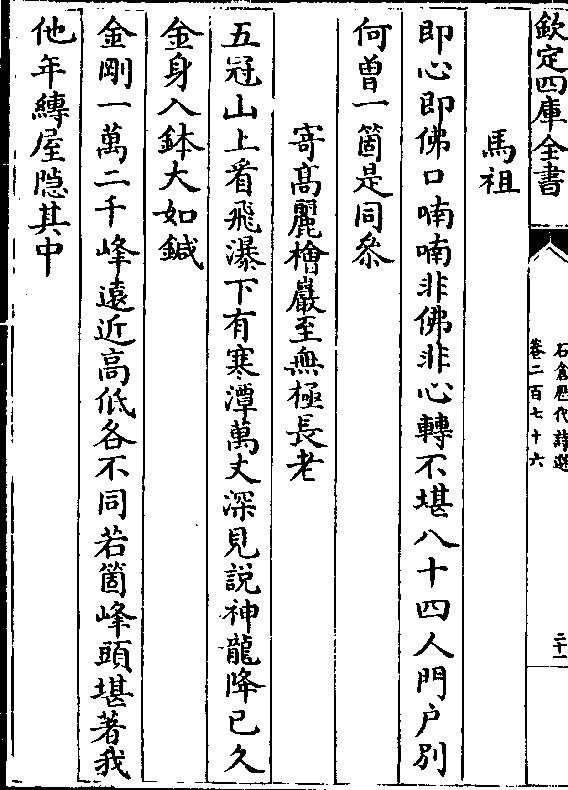 欽定四庫全書
石倉歷代詩選
卷二百七十六
二十一
馬祖
即心即佛口喃喃非佛非心轉不堪八十四人門户别
何曽一箇是同叅
寄髙麗檜巖至無極長老
五冠山上看飛瀑下有寒潭萬丈深見説神龍降已久
金身入鉢大如鍼
金剛一萬二千峰逺近高低各不同若箇峰頭堪著我
他年縳屋隠其中